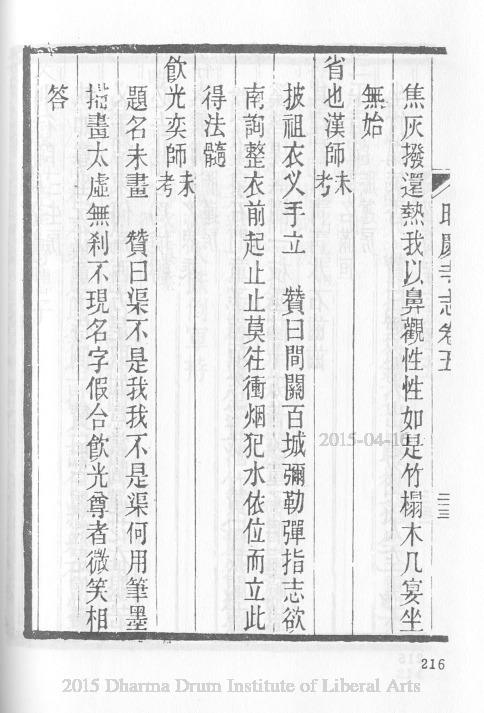 昭慶寺志卷五
焦灰撥還熱我以鼻觀性性如是竹榻木几宴坐
無始
省也漢師未考
披祖衣义手立　贊曰間關百城彌勒彈指志欲
南詢整衣前起止止莫往衝烟犯水依位而立此
得法髓
飲光奕師未考
題名未畫　贊曰渠不是我我不是渠何用筆墨
描畫太虛無刹不現名字假合飲光尊者微笑相
答
216
2015-04-16
2015 Dharma Drum Institute of Liberal Arts